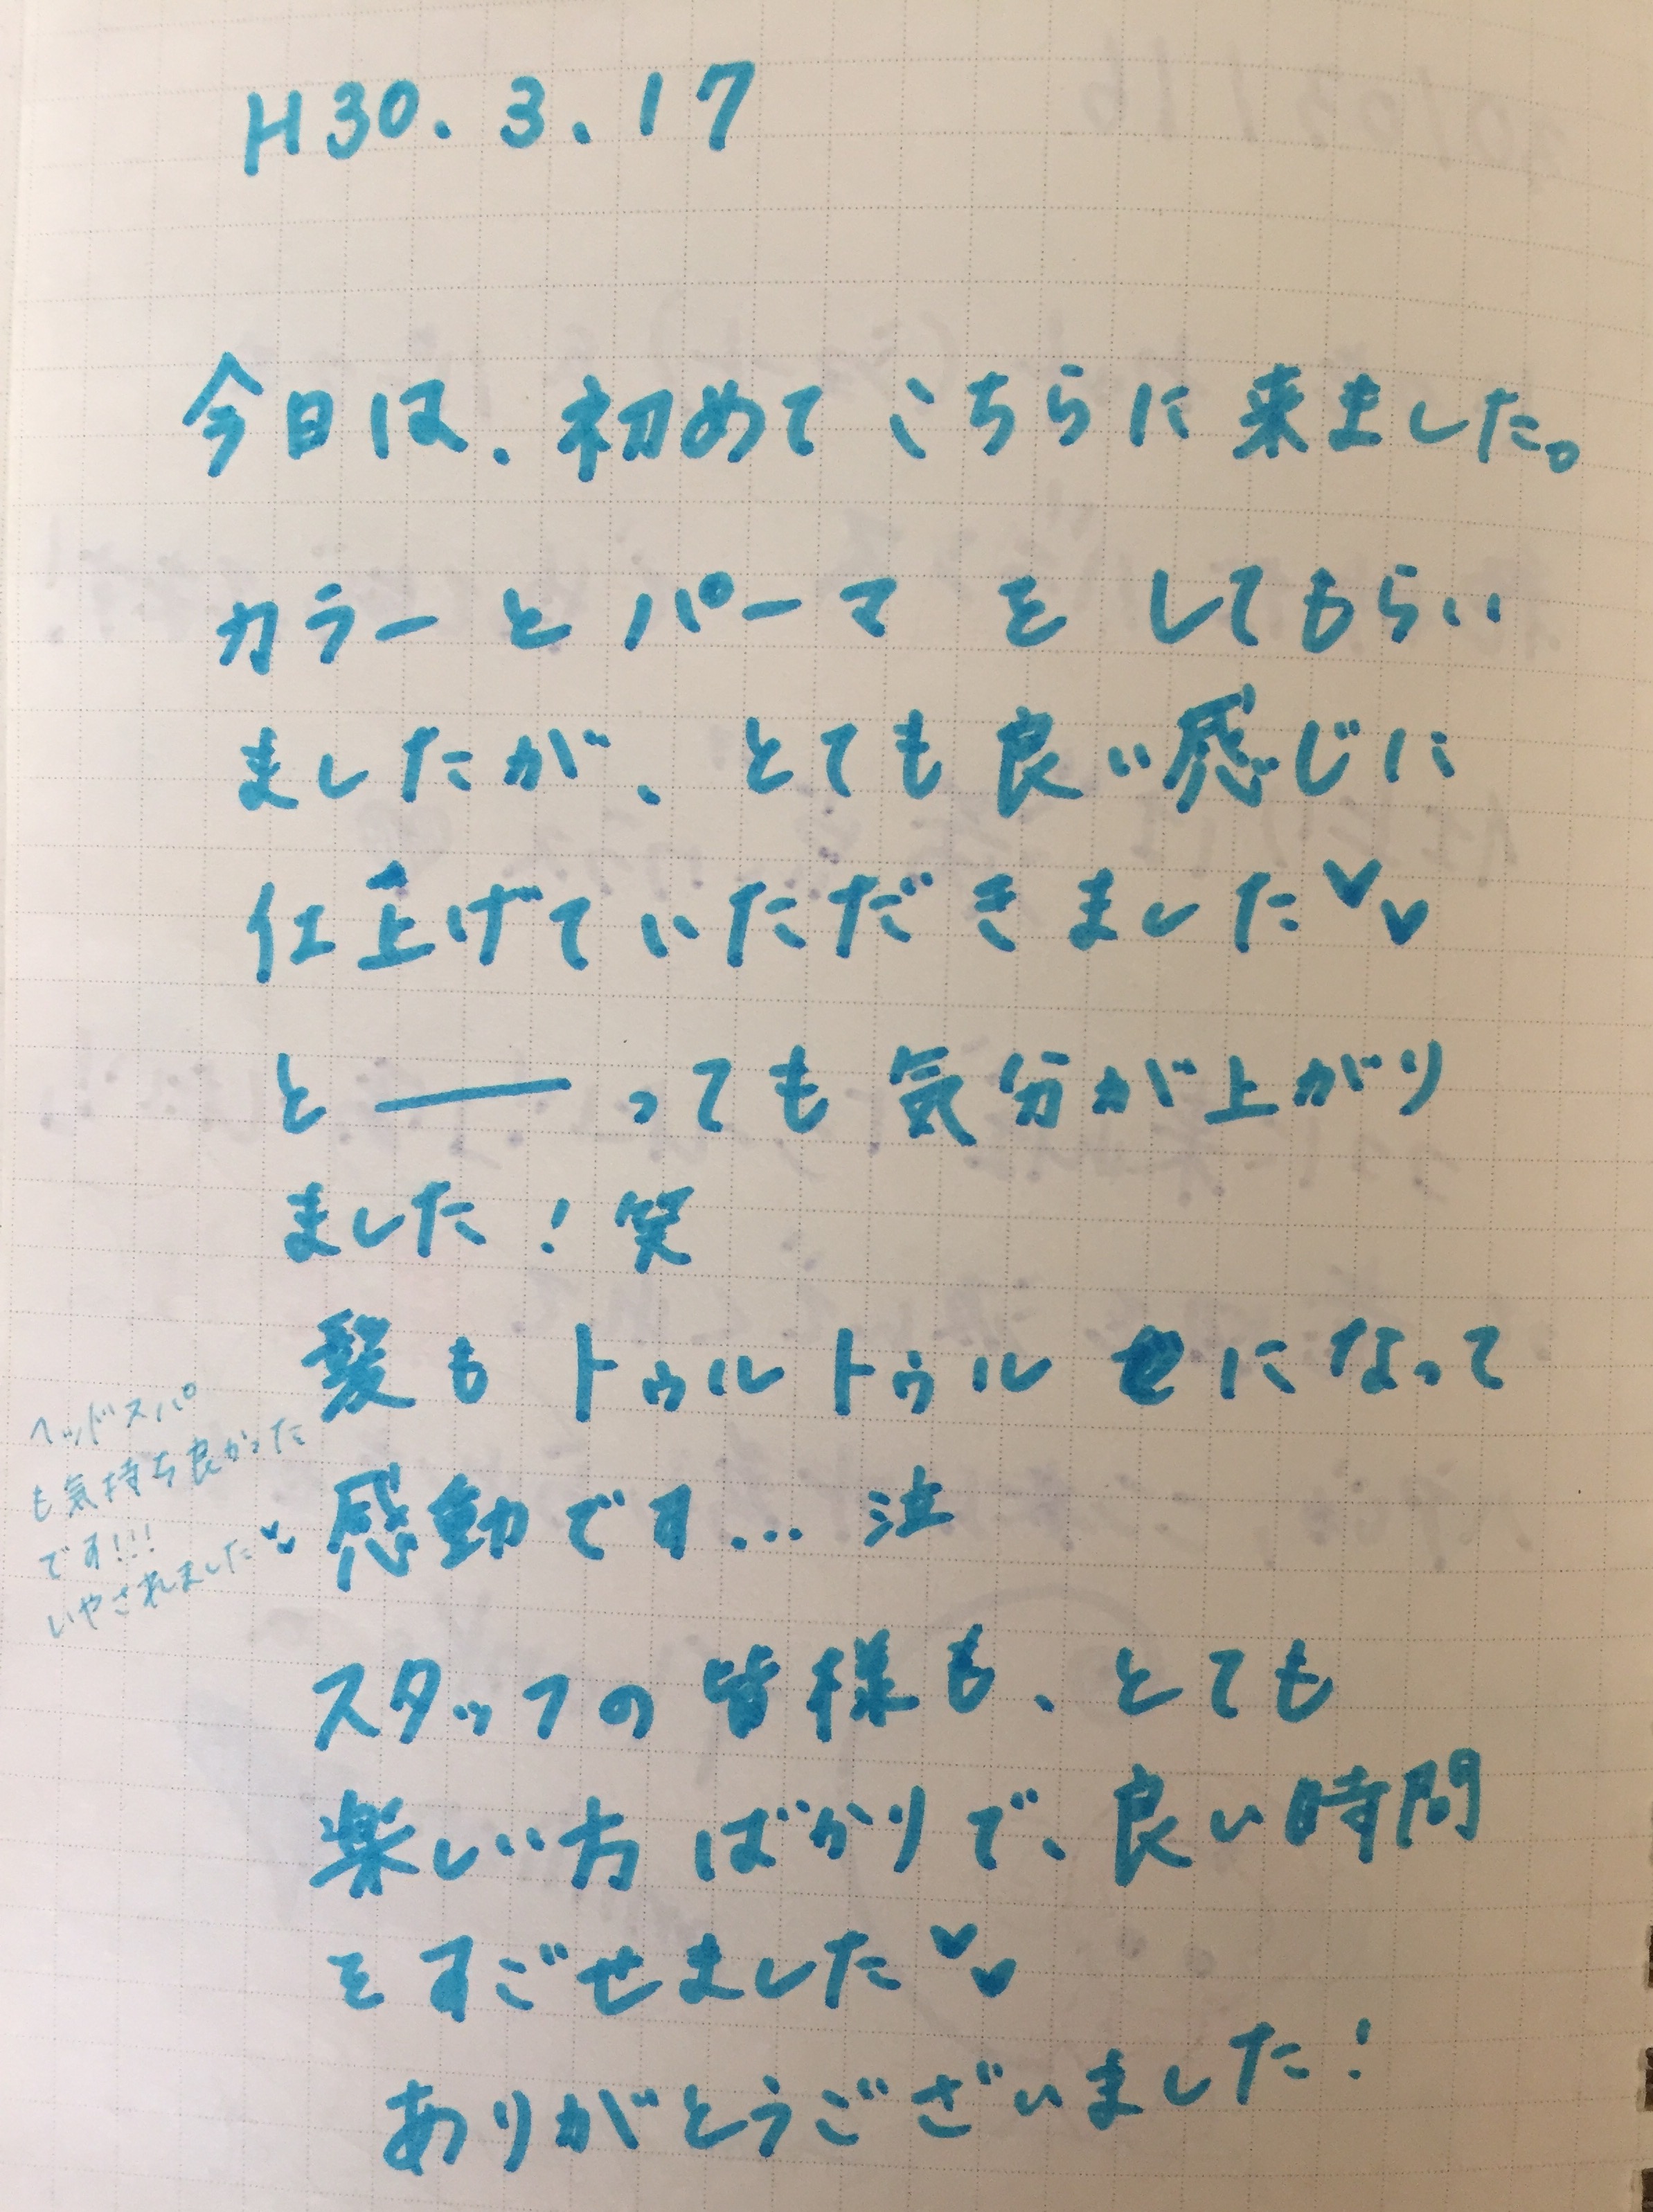 H30.3.17
今日は、初めてこちらに来ました。
カラーとパーマをしてもらい
ましたが、とても良い感じに
仕上げていただきました♥♥
と――っても気分が上がり
ました！笑
髪もトゥルトゥルになって
感動です...泣
ヘッドスパ
も気持ち良かった
です!!!
いやされました♥♥
スタッフの皆様も、とても
楽しい方ばかりで、良い時間
をすごせました♥♥
ありがとうございました！